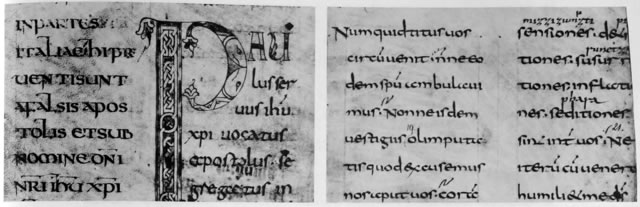 INPARTES
ITALIAE HI PRE
UENTI SUNT
A FALSIS APOS
TOLIS ET SUB
NOMINE DNI
NRI IHU XPI
PAU
lus ser
uus ihu
xpi uocatus
apostolus. se
gregatus in
Numquid titus uos
circuuenit
dem spu ambulaui
mus. Non eisdem
uestigiis. olim putatis
tis quod excusemus
nos aput uos. corā
sensiones. de
tiones. susurr
tiones. inflatio
phara
nes. seditiones
sint int uos. Ne
iterū cū uenero
humiliet me ds